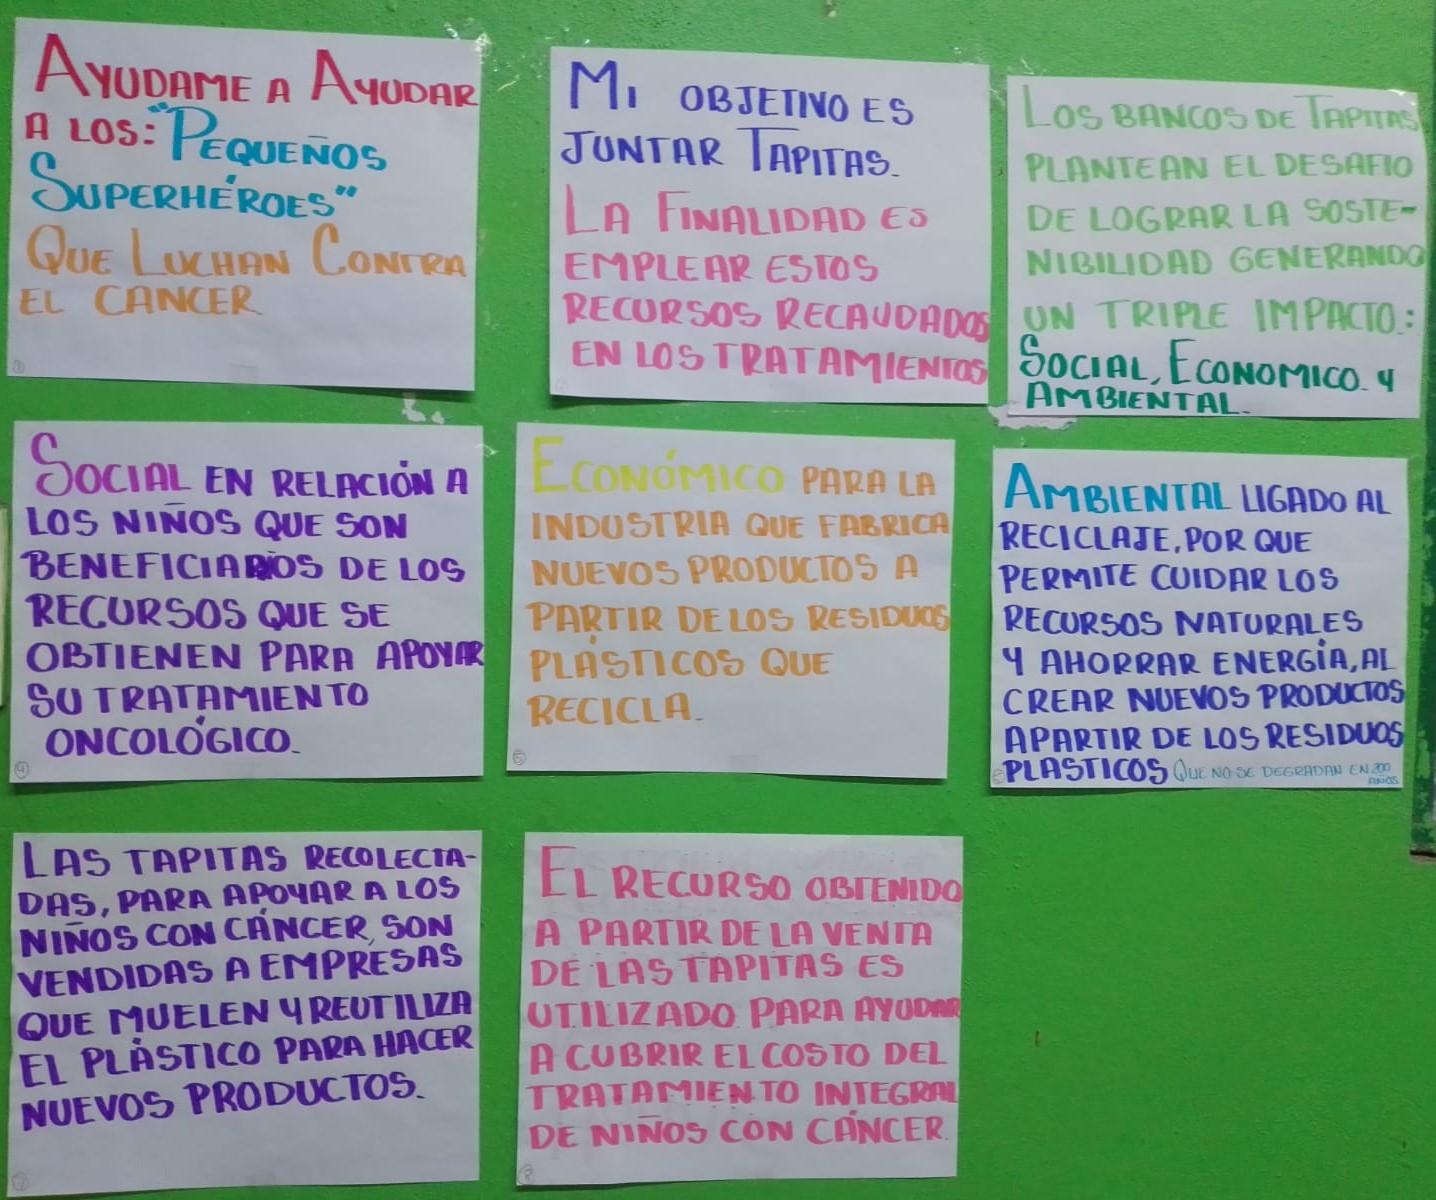 AYUDAME A AYUDAR
A LOS: "PEQUEÑOS
SUPERHÉROES"
QUE LUCHAN CONTRA
EL CANCER.
MI OBJETIVO ES
JUNTAR TAPITAS.
LA FINALIDAD ES
EMPLEAR ESTOS
RECURSOS RECAUDADOS
EN LOS TRATAMIENTOS
LOS BANCOS DE TAPITAS
PLANTEAN EL DESAFIO
DE LOGRAR LA SOSTE-
NIBILIDAD GENERANDO
UN TRIPLE IMPACTO.:
SOCIAL, ECONOMICO. Y
AMBIENTAL.
SOCIAL EN RELACIÓN A
LOS NIÑOS QUE SON
BENEFICIARIOS DE LOS
RECURSOS QUE SE
OBTIENEN PARA APOYAR
SU TRATAMIENTO
ONCOLÓGICO.
4
ECONÓMICO PARA LA
INDUSTRIA QUE FABRICA
NUEVOS PRODUCTOS A
PARTIR DE LOS RESIDUOS
PLÁSTICOS QUE
RECICLA.
5
AMBIENTAL LIGADO AL
RECICLAJE, POR QUE
PERMITE CUIDAR LOS
RECURSOS NATURALES
Y AHORRAR ENERGÍA, AL
CREAR NUEVOS PRODUCTOS
APARTIR DE LOS RESIDUOS
PLASTICOS QUE NO SE DEGRADAN EN 200
AÑOS
LAS TAPITAS RECOLECTA-
DAS, PARA APOYAR A LOS
NIÑOS CON CÁNCER, SON
VENDIDAS A EMPRESAS
QUE MUELEN Y REUTILIZA
EL PLÁSTICO PARA HACER
NUEVOS PRODUCTOS.
EL RECURSO OBTENIDO
A PARTIR DE LA VENTA
DE LAS TAPITAS ES
UTILIZADO PARA AYUDAR
A CUBRIR EL COSTO DEL
TRATAMIENTO INTEGRAL
DE NIÑOS CON CÁNCER.
8